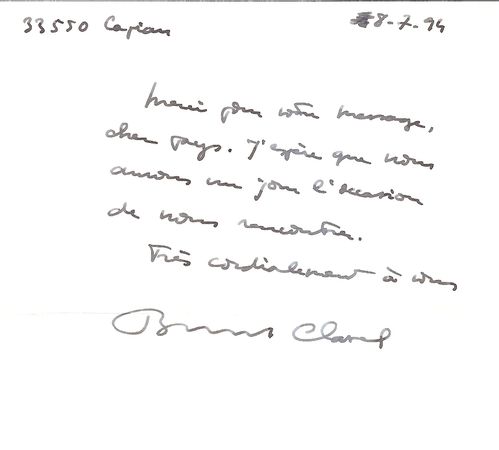 33550 Capian 8-7-94
Merci pour votre message,
cher pays. J'espère que nous
aurons un jour l'occasion
de nous rencontrer.
Très cordialement à vous
Clavel